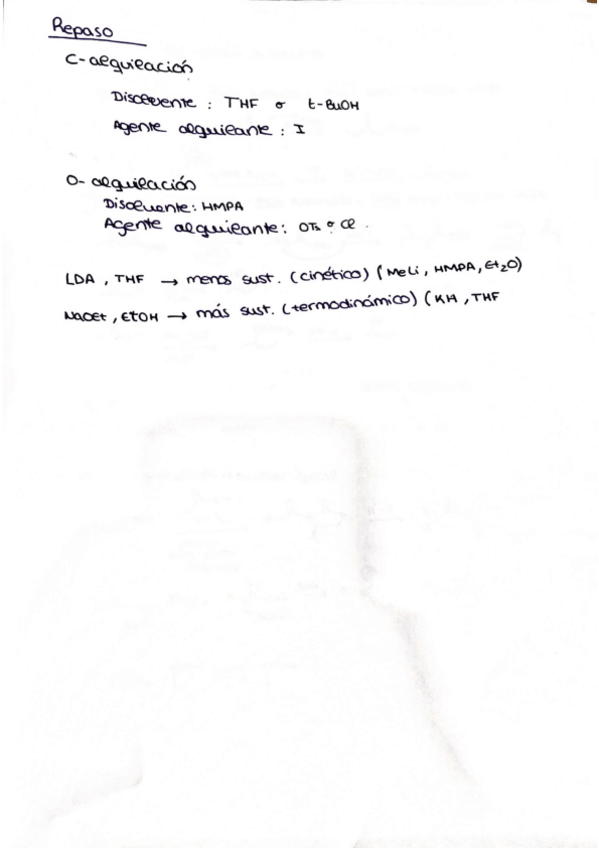 Repaso
C-alquilación
Disolvente : THF o t-BuOH
Agente alquilante : I
O- alquilación
Disolvente: HMPA
Agente alquilante: OTs o Cl .
LDA , THF → menos sust. (cinético) ( MeLi , HMPA, Et2O)
NaOEt , EtOH → más sust. (termodinámico) ( KH , THF